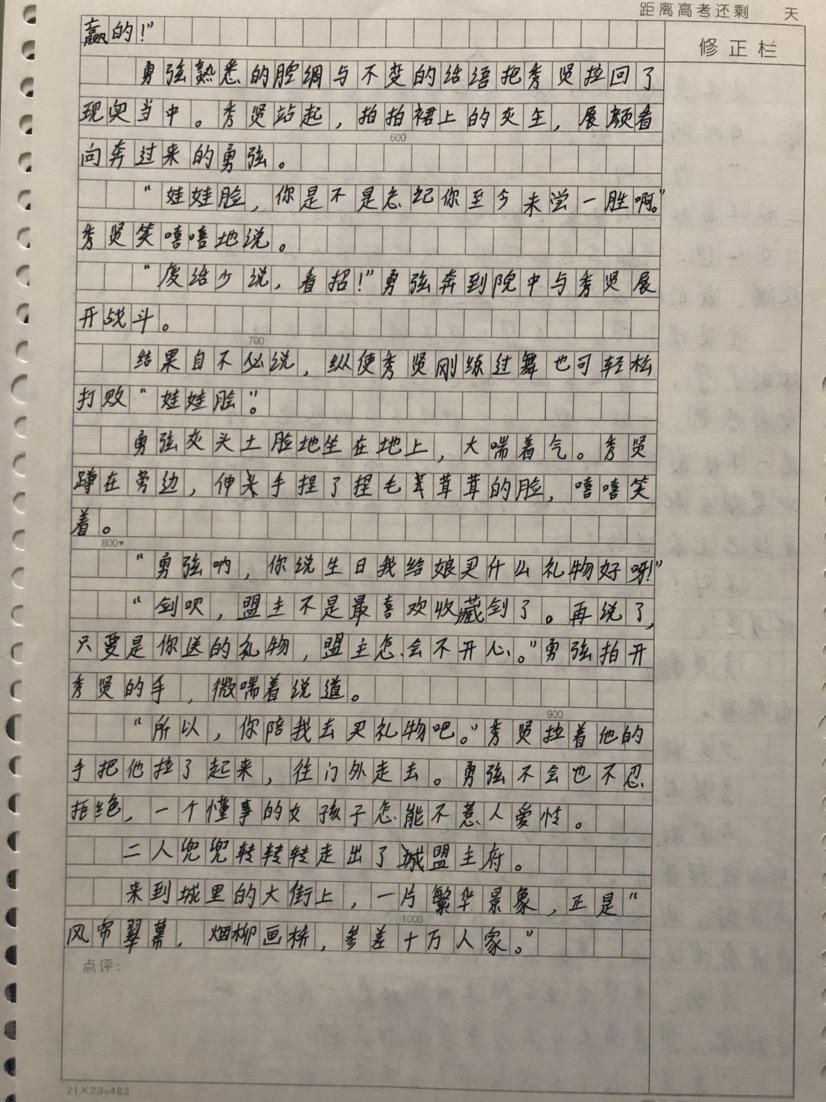 距离高考还剩 天
修正栏
赢的！”
勇弦熟悉的腔调与不变的话语把秀贤拉回了
现实当中。秀贤站起，拍拍裙上的灰尘，展颜看
600
向奔过来的勇弦。
“娃娃脸，你是不是忘记你至今未尝一胜啊。”
秀贤笑嘻嘻地说。
“废话少说，看招！”勇弦奔到院中与秀贤展
开战斗。
700
结果自不必说，纵使秀贤刚练过舞也可轻松
打败“娃娃脸”。
勇弦灰头土脸地坐在地上，大喘着气。秀贤
蹲在旁边，伸手捏了捏毛茸茸的脸，嘻嘻笑
着。
800
“勇弦呐，你说生日我给娘买什么礼物好呀！”
“剑呗，盟主不是最喜欢收藏剑了。再说了，
只要是你送的礼物，盟主怎会不开心。”勇弦拍开
秀贤的手，微喘着说道。
900
“所以，你陪我去买礼物吧。”秀贤拉着他的
手把他拉了起来，往门外走去。勇弦不会也不忍
拒绝，一个懂事的女孩子怎能不惹人爱怜。
二人兜兜转转转走出了城盟主府。
来到城里的大街上，一片繁华景象，正是“
1000
风帘翠幕，烟柳画桥，参差十万人家。”
点评：
21×23=483